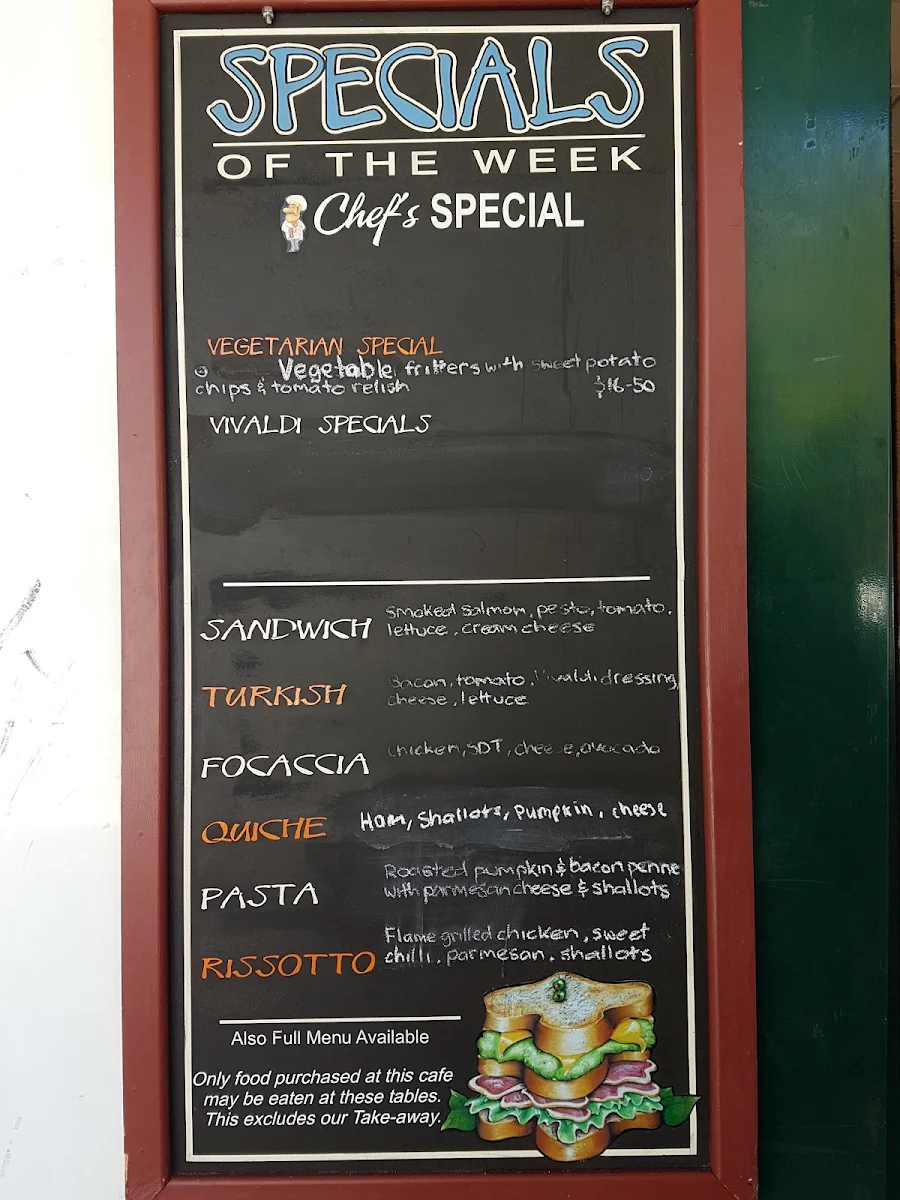 SPECIALS
OF THE WEEK
Chef's SPECIAL
VEGETARIAN SPECIAL
Vegetable fritters with sweet potato
chips & tomato relish $16-50
VIVALDI SPECIALS
SANDWICH
Smoked salmon, pesto, tomato,
lettuce, cream cheese
TURKISH
Bacon, tomato, Vivaldi dressing,
cheese, lettuce
FOCACCIA
Chicken, SDT, cheese, avocado
QUICHE
Ham, Shallots, Pumpkin, cheese
PASTA
Roasted pumpkin & bacon penne
with parmesan cheese & shallots
RISSOTTO
Flame grilled chicken, sweet
chilli, parmesan, shallots
Also Full Menu Available
Only food purchased at this cafe
may be eaten at these tables.
This excludes our Take-away.